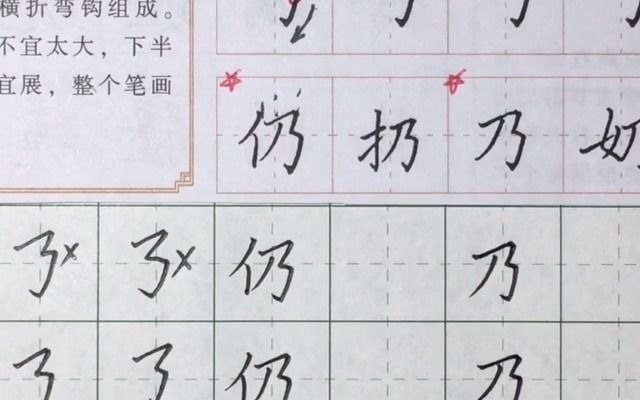 横折弯钩组成。
不宜太大，下半
宜展，整个笔画
仍 扔 乃 奶
仍 乃
仍 乃